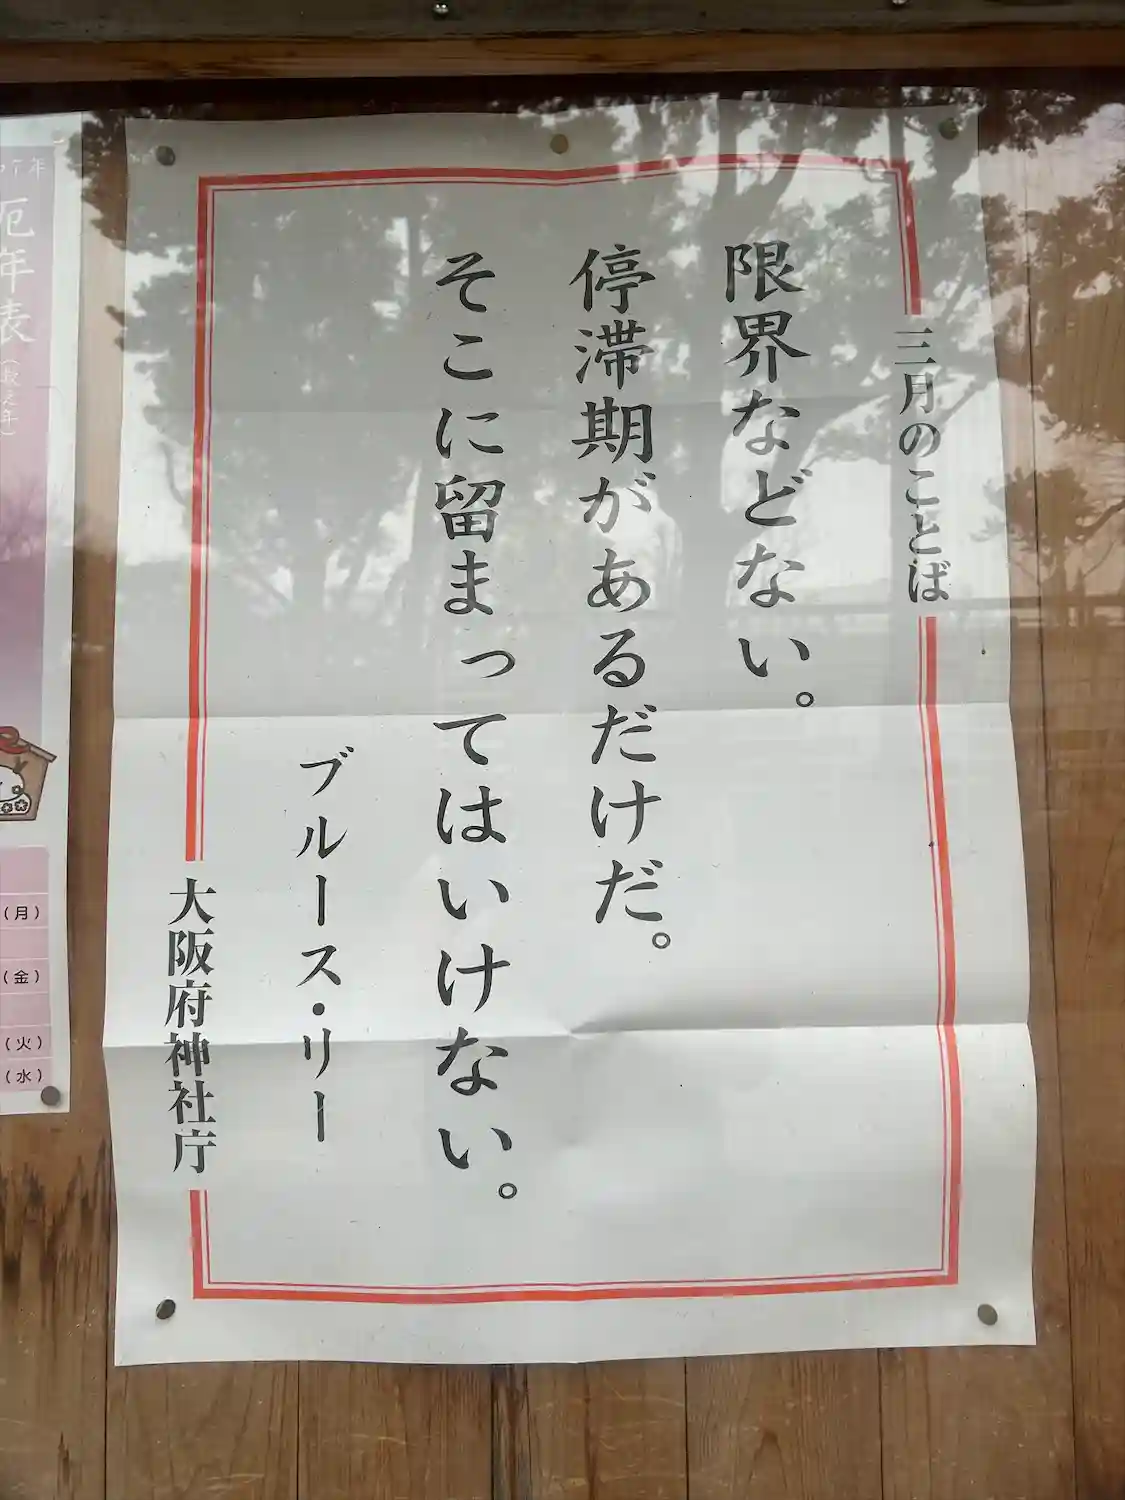 三月のことば
限界などない。
停滞期があるだけだ。
そこに留まってはいけない。
ブルース・リー
大阪府神社庁
厄年表
(月)
(金)
(火)
(水)